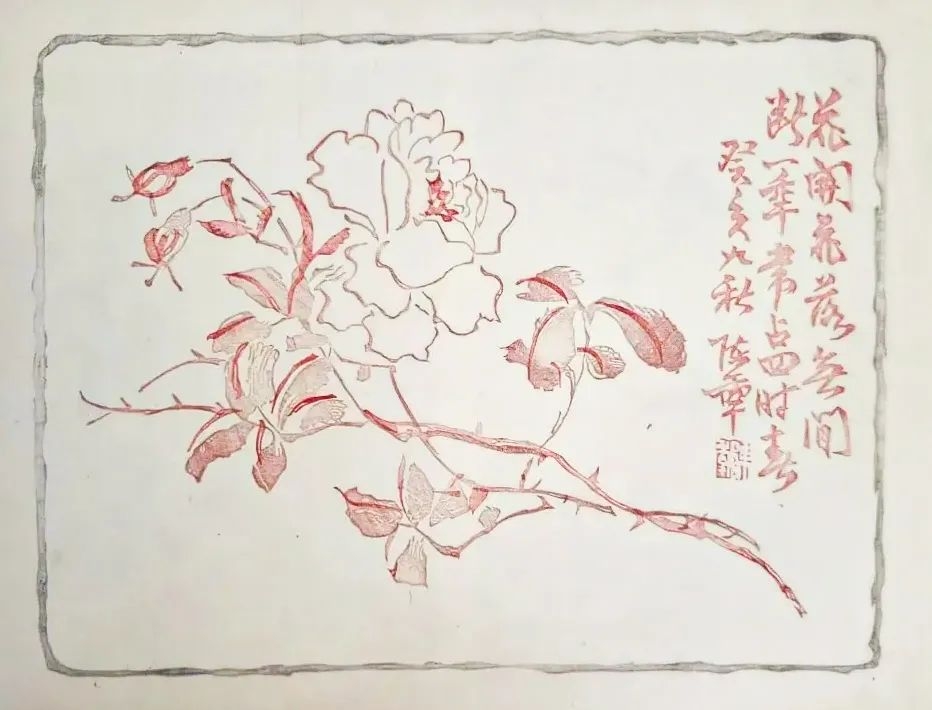 花開花落無間
断一年常占四時春
癸亥九秋 陳